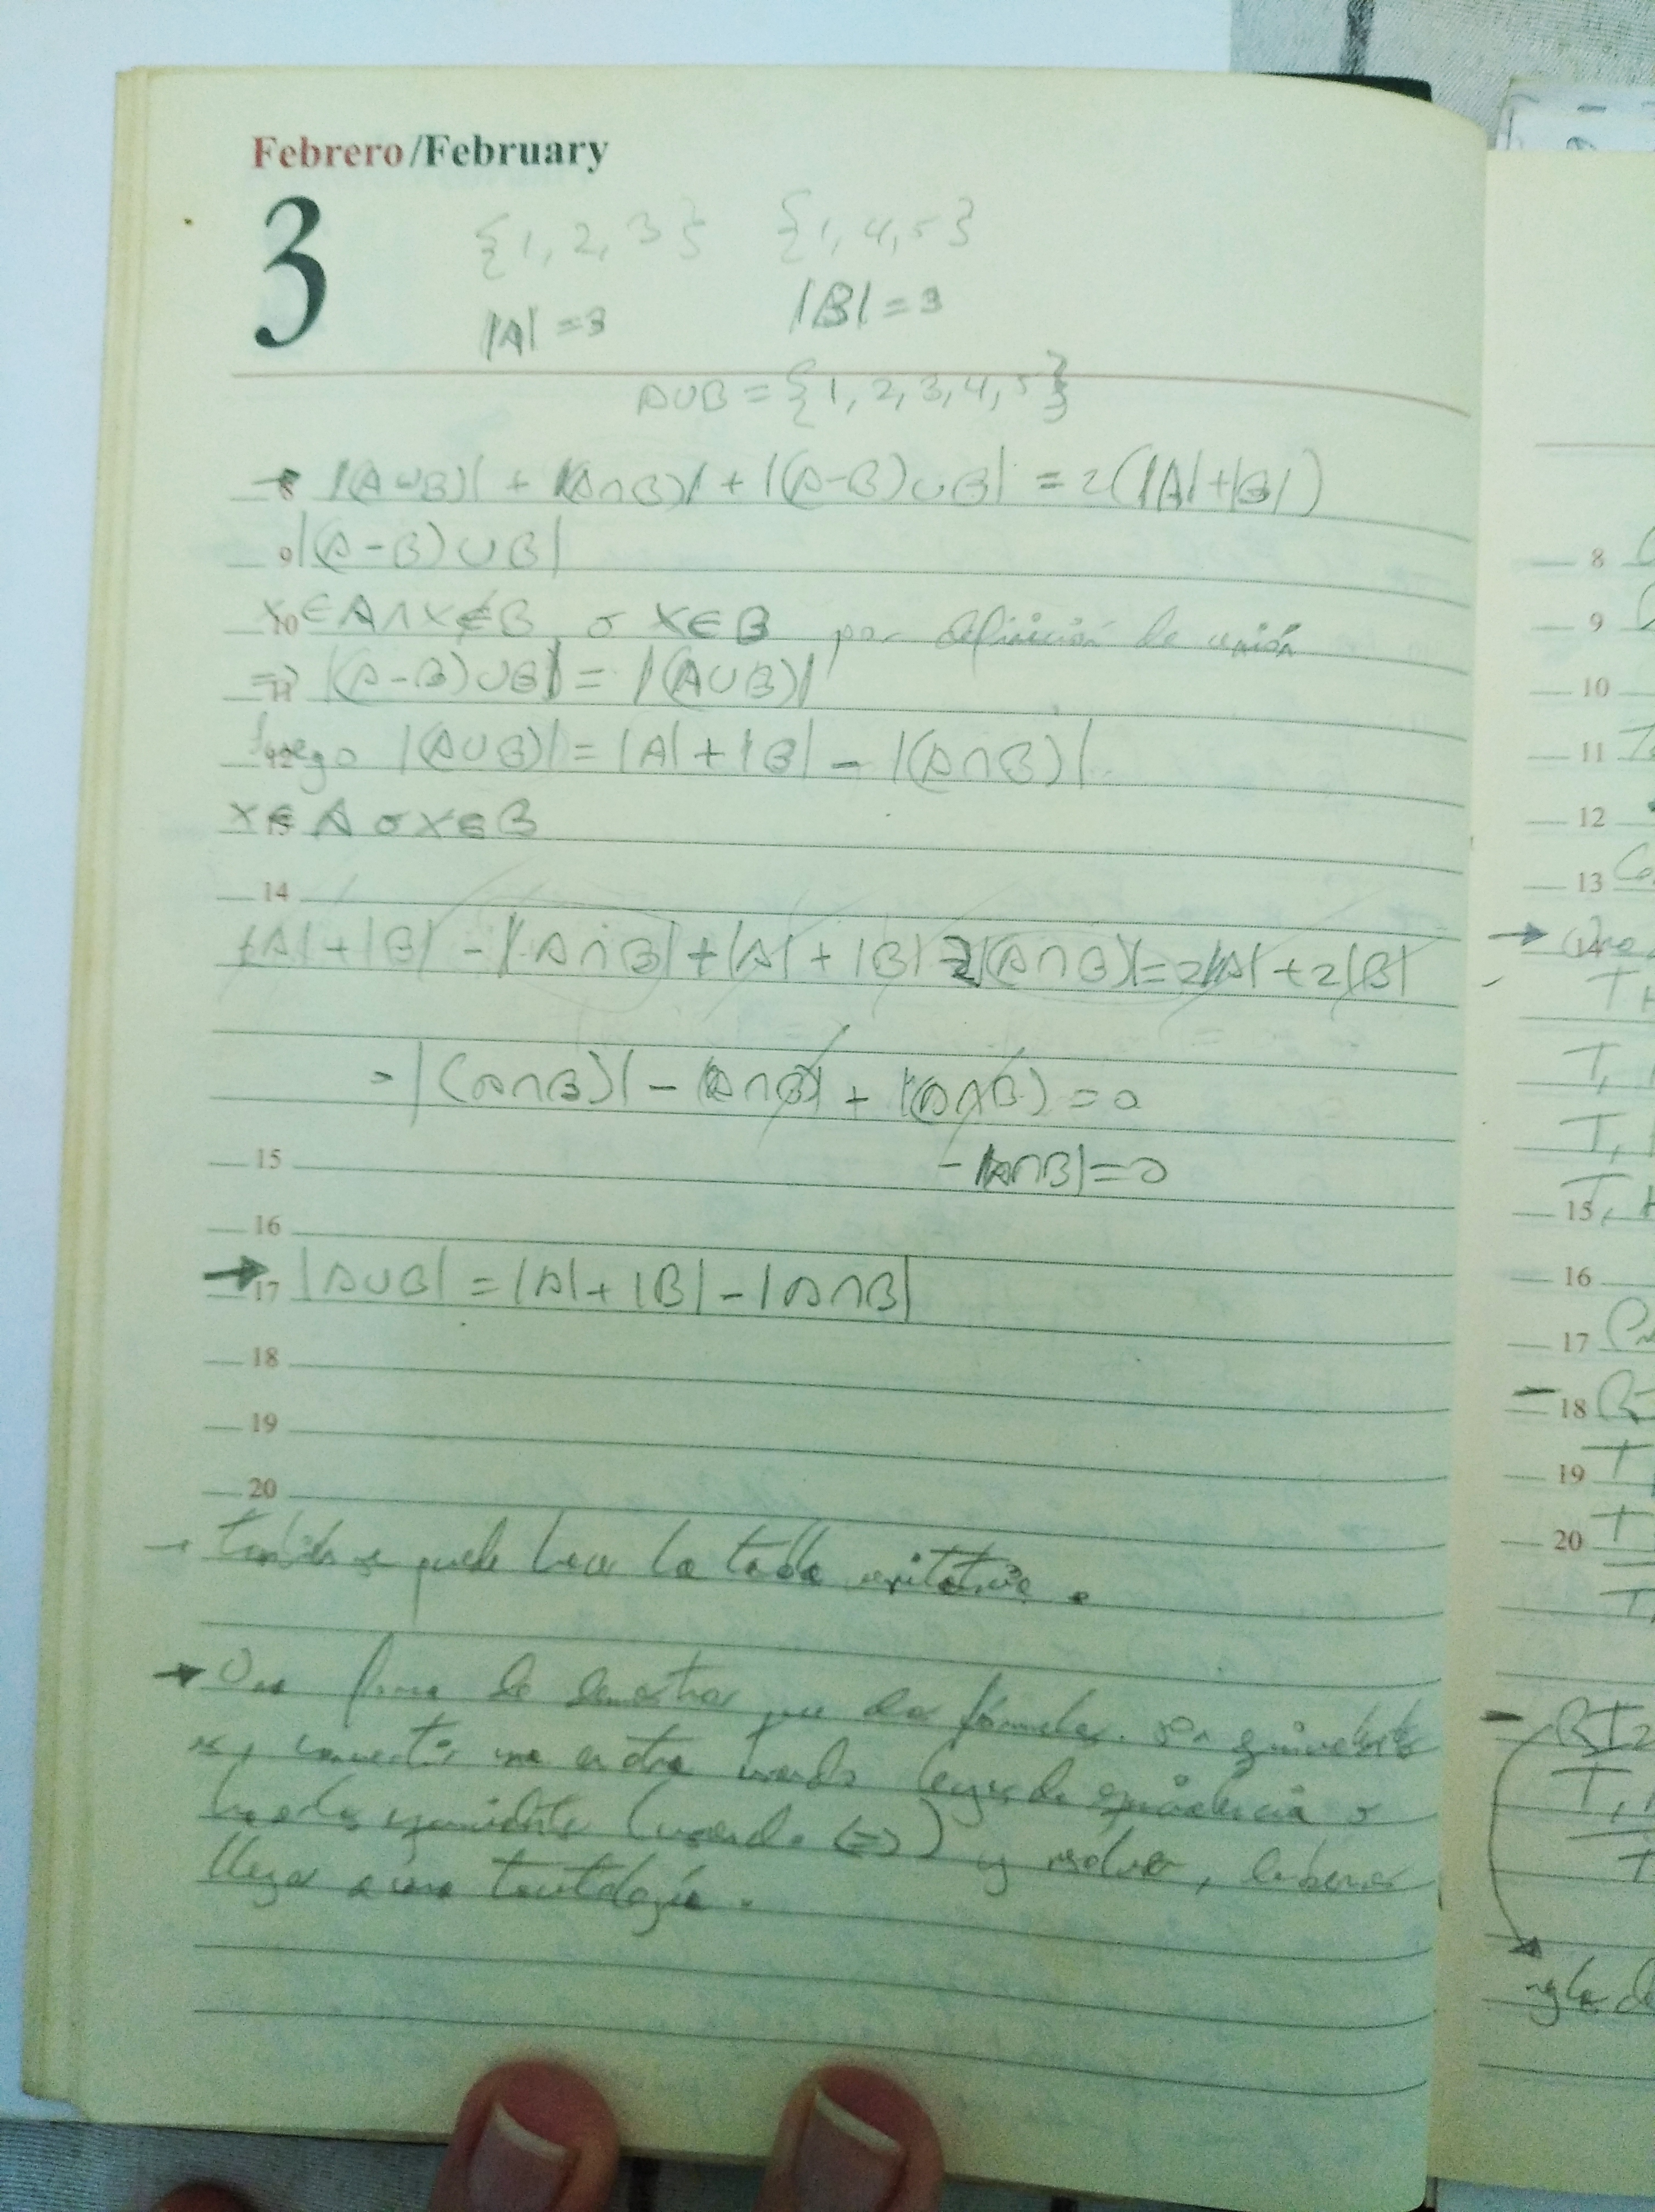 Febrero/February
3
{1, 2, 3} {1, 4, 5}
|A| = 3 |B| = 3
A∪B = {1, 2, 3, 4, 5}
8 → |(A∪B)| + |(A∩B)| + |(A-B)∪B| = 2(|A|+|B|)
9 |(A-B)∪B|
10 x∈A∧x∉B o x∈B por definición de unión
11 ⇒ |(A-B)∪B| = |(A∪B)|
12 luego |(A∪B)| = |A| + |B| - |(A∩B)|
13 x∈A o x∈B
14
|A| + |B| - |A∩B| + |A| + |B| - 2|(A∩B)| = 2|A| + 2|B|
= |(A∩B)| - |(A∩B)| + |(A∩B) = 0
15 - |A∩B| = 0
16
17 → |A∪B| = |A| + |B| - |A∩B|
18
19
20
→ también se puede hacer la tabla veritativa.
→ Una forma de demostrar que dos fórmulas son equivalentes
es, convertir una en otra usando leyes de equivalencia o
hacerlas equivalentes (usando ⇔) y resolver, debemos
llegar a una tautología.
8
9
10
11
12
13
14 →
T
T,
T,
15 T,
16
17
18 -
19 T
20 T
- RI2
T,
regla de